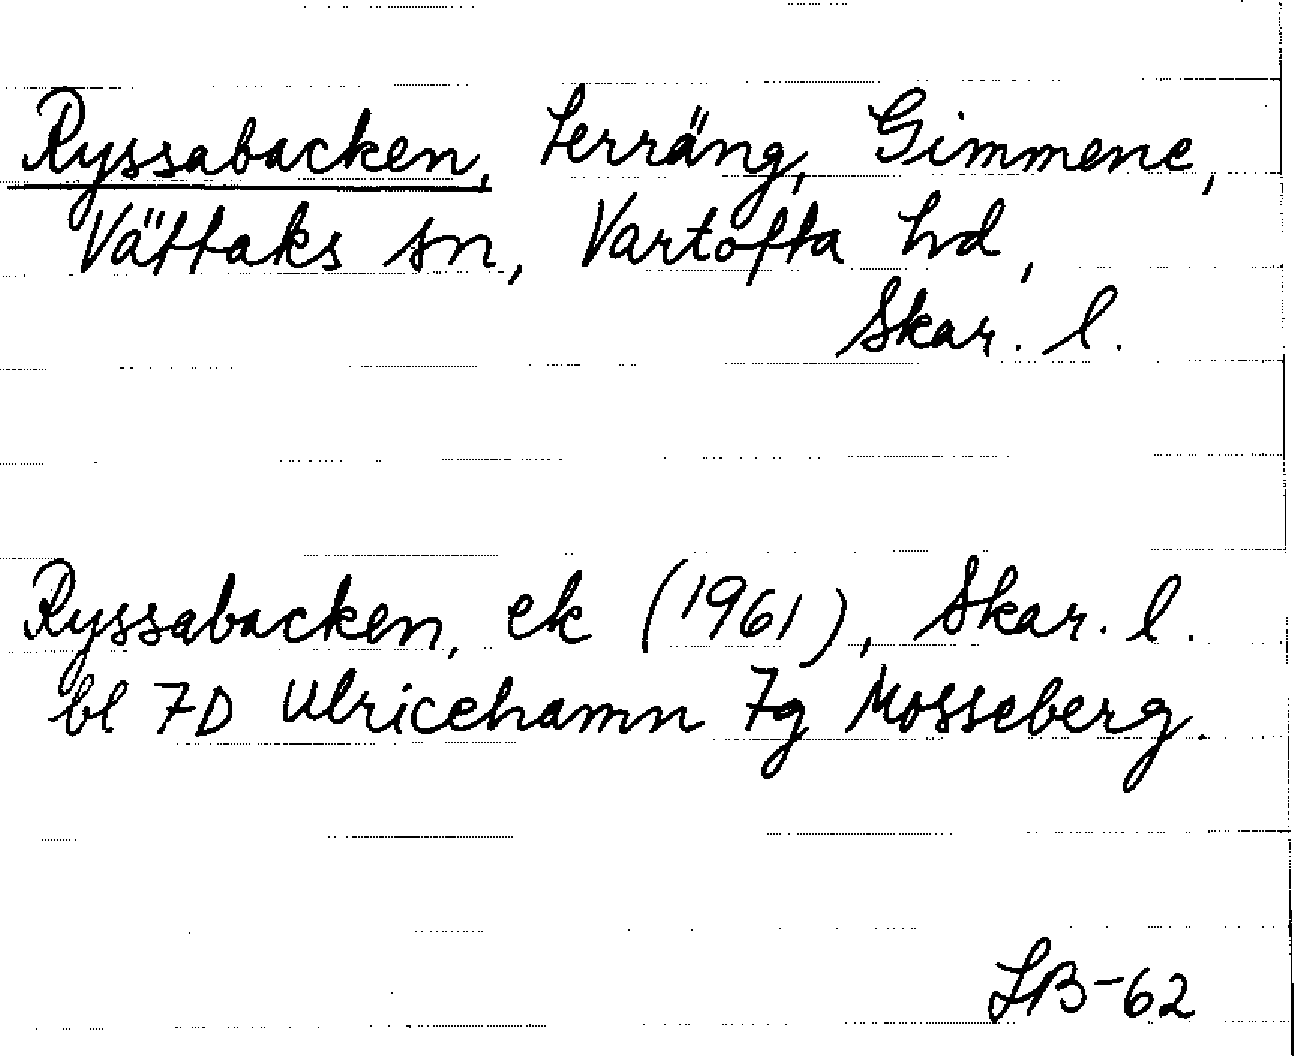 Ryssabacken, terräng, Gimmene,
Vättaks sn, Vartofta hd,
Skar. l.
Ryssabacken, ek (1961), Skar. l.
bl 7D Ulricehamn 7g Mosseberg.
LB-62